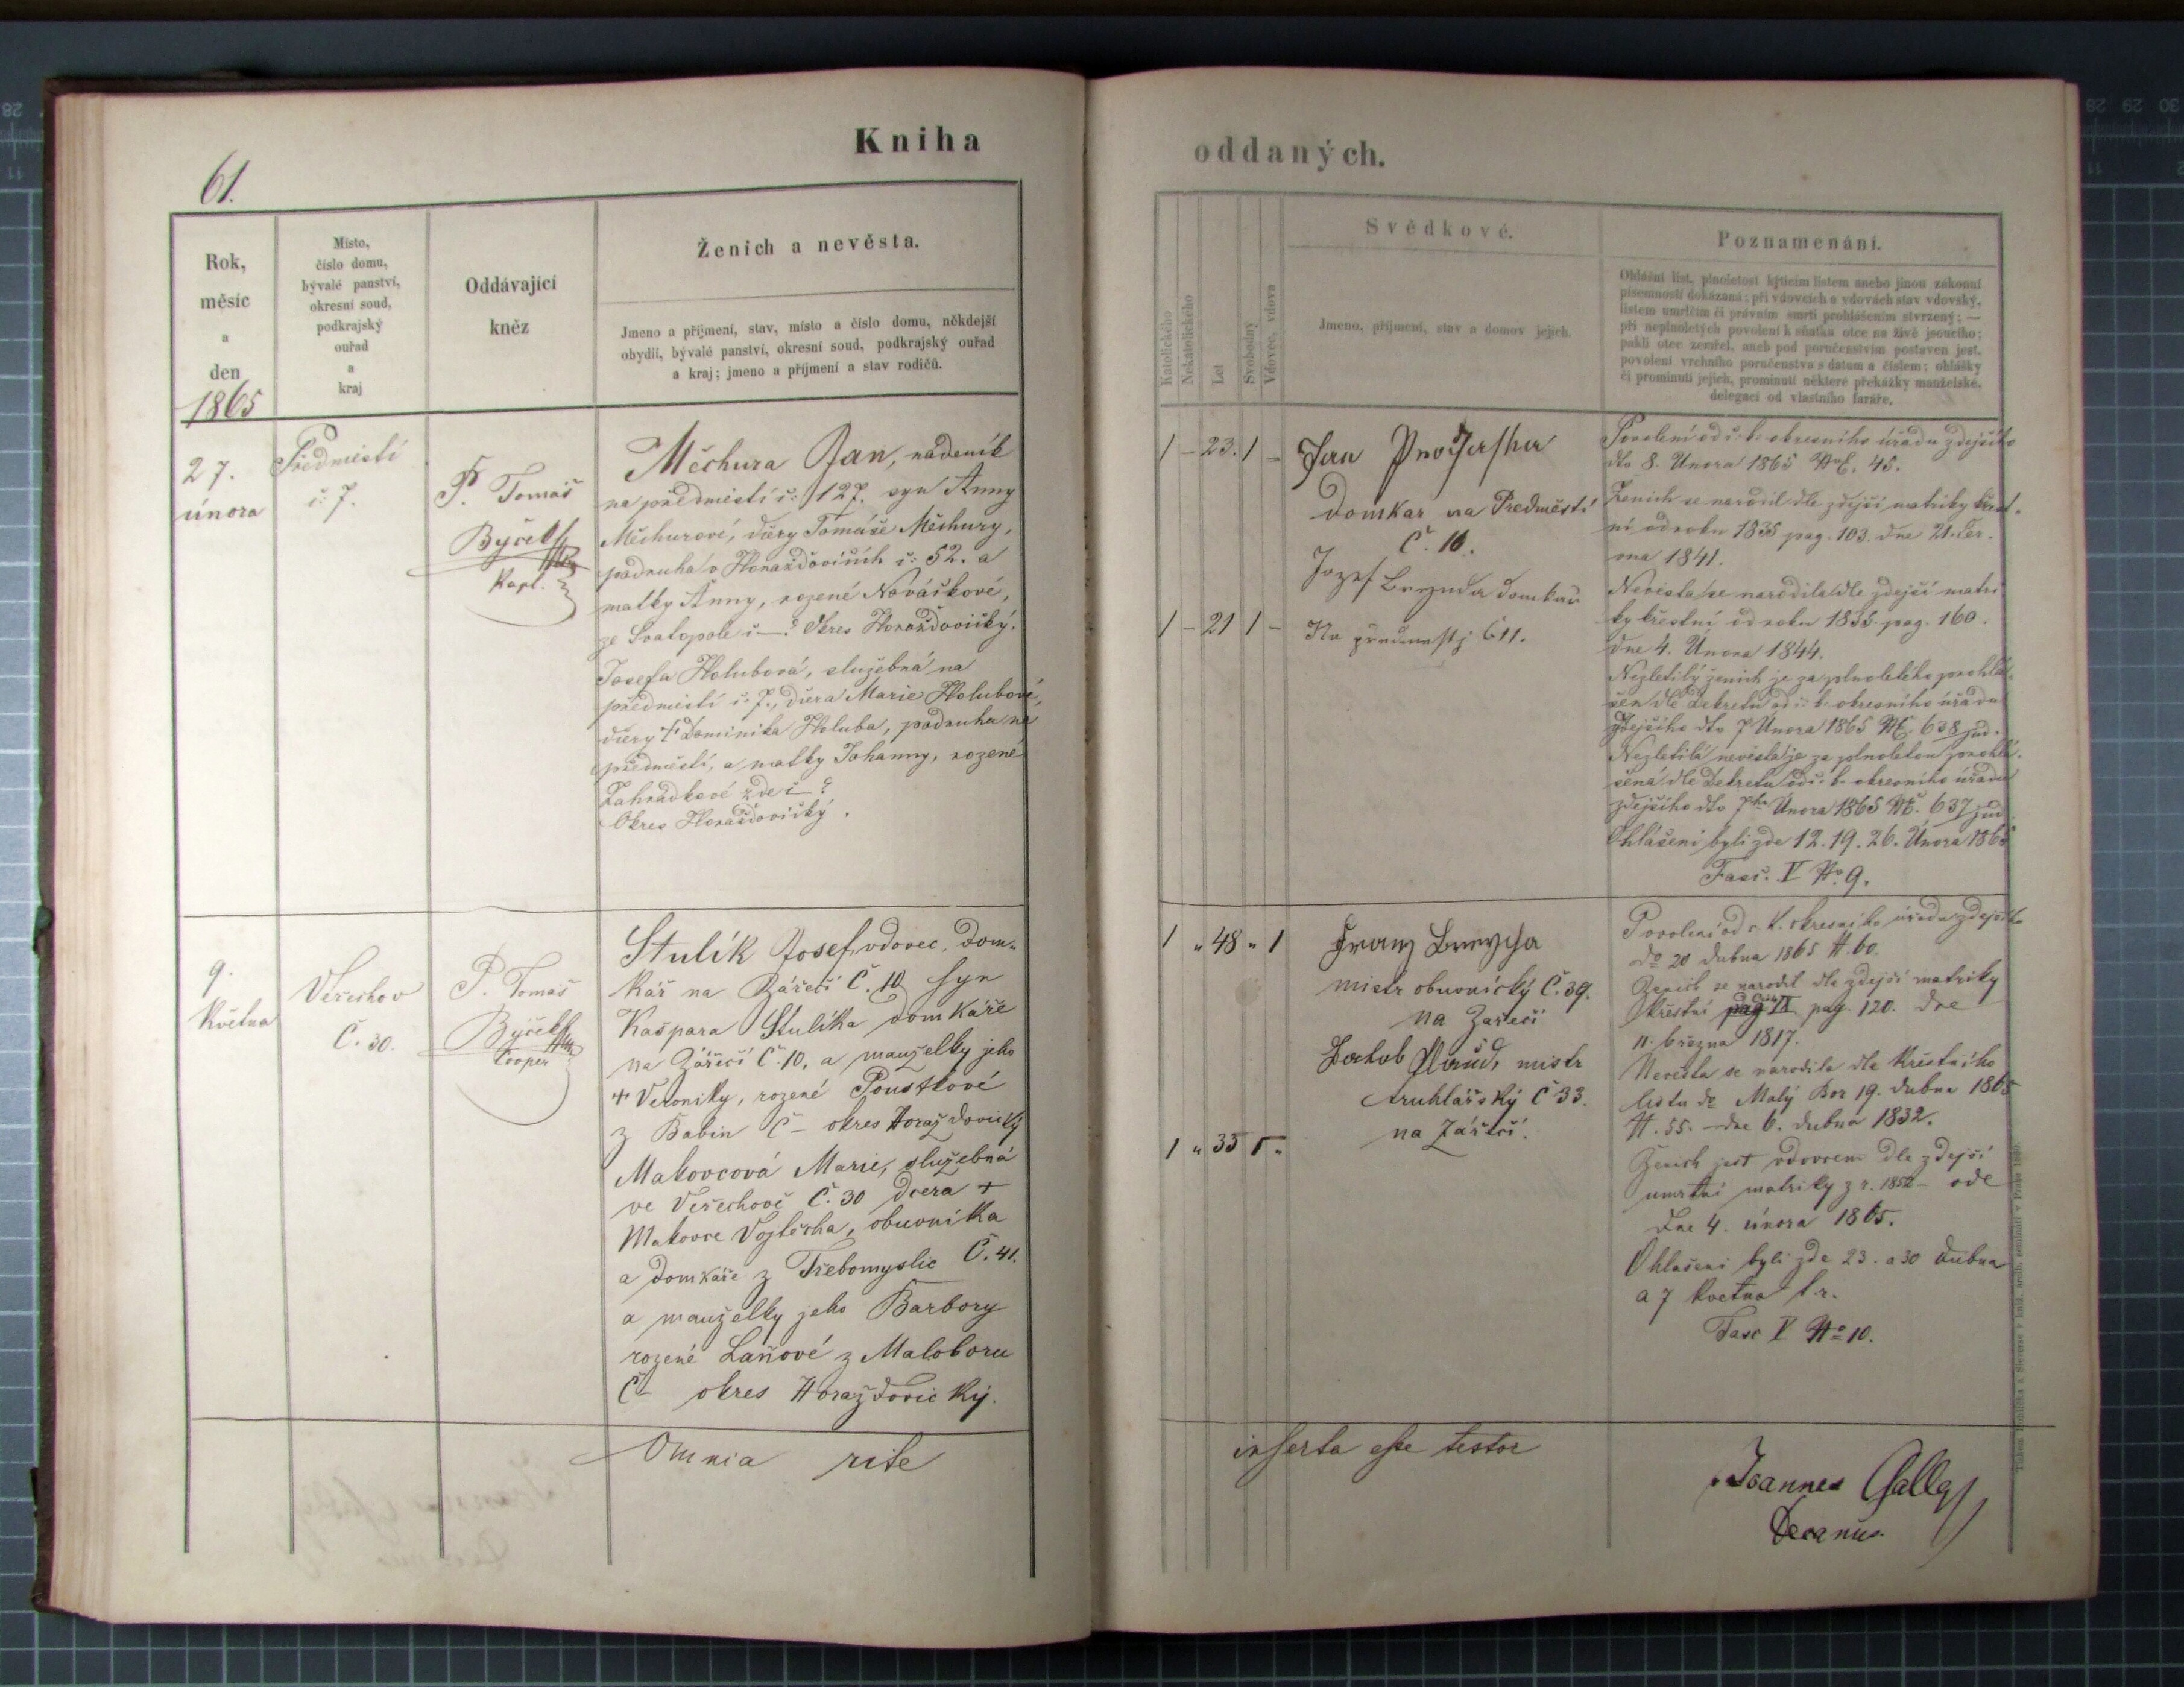 Kniha
oddaných.
61.
Rok,
měsíc
a
den
1865
Místo,
číslo domu,
bývalé panství,
okresní soud,
podkrajský
ouřad
a
kraj
Oddávající
kněz
Ženich a nevěsta.
Jmeno a příjmení, stav, místo a číslo domu, někdejší
obydlí, bývalé panství, okresní soud, podkrajský ouřad
a kraj; jmeno a příjmení a stav rodičů.
27.
února
Předměstí
č. 7.
P. Tomáš
Kapl.
Měchura Jan, nádeník
na předměstí č: 127. syn Anny
Měchurové, dcery Tomáše Měchury,
podruha v Horažďovicích č: 52. a
matky Anny, rozené Nováškové,
ze Svatopole č —? Okres Horažďovický.
Josefa Holubová, služebná na
předměstí č. 7., dcera Marie Holubové,
dcery † Dominika Holuba, podruha na
předměstí, a matky Johanny, rozené
Zahrádkové zde č — ?
Okres Horažďovický.
9.
Května
Veřechov
Č. 30.
P. Tomáš
Cooper
Stulík Josef, vdovec, dom-
kář na Zářečí Č. 10 syn
Kašpara Stulíka domkáře
na Zářečí Č. 10, a manželky jeho
+ Veroniky, rozené Poustkové
z Babin Č – okres Horažďovický
Makovcová Marie, služebná
ve Veřechově Č. 30 dcera +
Makovce Vojtěcha, obuvníka
a domkáře z Třebomyslic Č. 41.
a manželky jeho Barbory
rozené Laňové z Maloboru
Č – okres Horažďovický.
Omnia rite
Katolického
Nekatolického
Let
Svobodný
Vdovec, vdova
Svědkové.
Jmeno, příjmení, stav a domov jejich.
Poznamenání.
Ohlášní list, plnoletost křticím listem anebo jinou zákonní
písemností dokázaná; při vdovcích a vdovách stav vdovský,
listem umrlčím či právním smrti prohlášením stvrzený; —
při neplnoletých povolení k sňatku otce na živě jsoucího;
pakli otec zemřel, aneb pod poručenstvím postaven jest,
povolení vrchního poručenstva s datum a číslem; ohlášky
či prominutí jejich, prominutí některé překážky manželské,
delegací od vlastního faráře.
1 – 23. 1 –
Jan
Domkar na Předměstí
Č. 10.
Jozef Domkař
Na předměstj č 11.
1 – 21 1 –
Povolení od c. k. okresního úřadu zdejšího
dto 8. Února 1865 45.
Ženich se narodil dle zdejší matriky křest-
ní od roku 1835 pag. 103. dne 21. Čer-
vna 1841.
Nevěsta se narodila dle zdejší matri
ky křestní od roku 1835 pag. 160.
dne 4. Února 1844.
Nezletilý ženich je za plnoletého prohlá-
šen dle Dekretu od c. k. okresního úřadu
zdejšího dto 7 Února 1865 638 jud.
Nezletilá nevěsta je za plnoletou prohlá-
šená dle Dekretu od c. k. okresního úřadu
zdejšího dto 7ho Února 1865 637 jud
Ohlášeni byli zde 12. 19. 26. Února 1865
Fasc. V No 9.
1 „ 48 „ 1
Franz
mistr obuvnický Č. 39.
na Zářečí
Jakob mistr
truhlářský Č 33.
na Zářečí.
1 „ 33 1 „
Povolení od c. k. okresního úřadu zdejšího
do 20 dubna 1865 N. 60.
Ženich se narodil dle zdejší matriky
křestní pag. 120. dne
11. března 1817.
Nevěsta se narodila dle křestního
listu do Malý Bor 19. dubna 1865
N. 55. – dne 6. dubna 1832.
Ženich jest vdovcem dle zdejší
umrtní matriky z r. 1852 – ode
dne 4. února 1865.
Ohlášeni byli zde 23. a 30 dubna
a 7 května t. r.
Fasc V No 10.
inserta esse testor
Joannes Galla
Decanus.